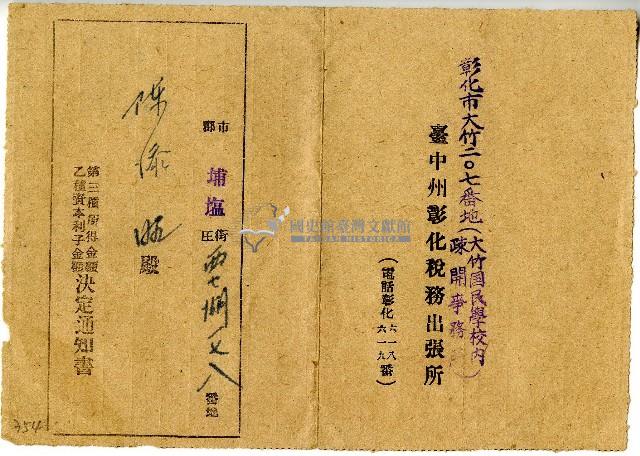 彰化市大竹二〇七番地(大竹国民學校内
疎開事務所)
臺中州彰化稅務出張所
(電話彰化 六一八 六一九 番)
市
郡
埔塩
街
庄
七八
番地
殿
第三種所得金額
乙種資本利子金額
決定通知書
國史館臺灣文獻館
TAIWAN HISTORICA
354